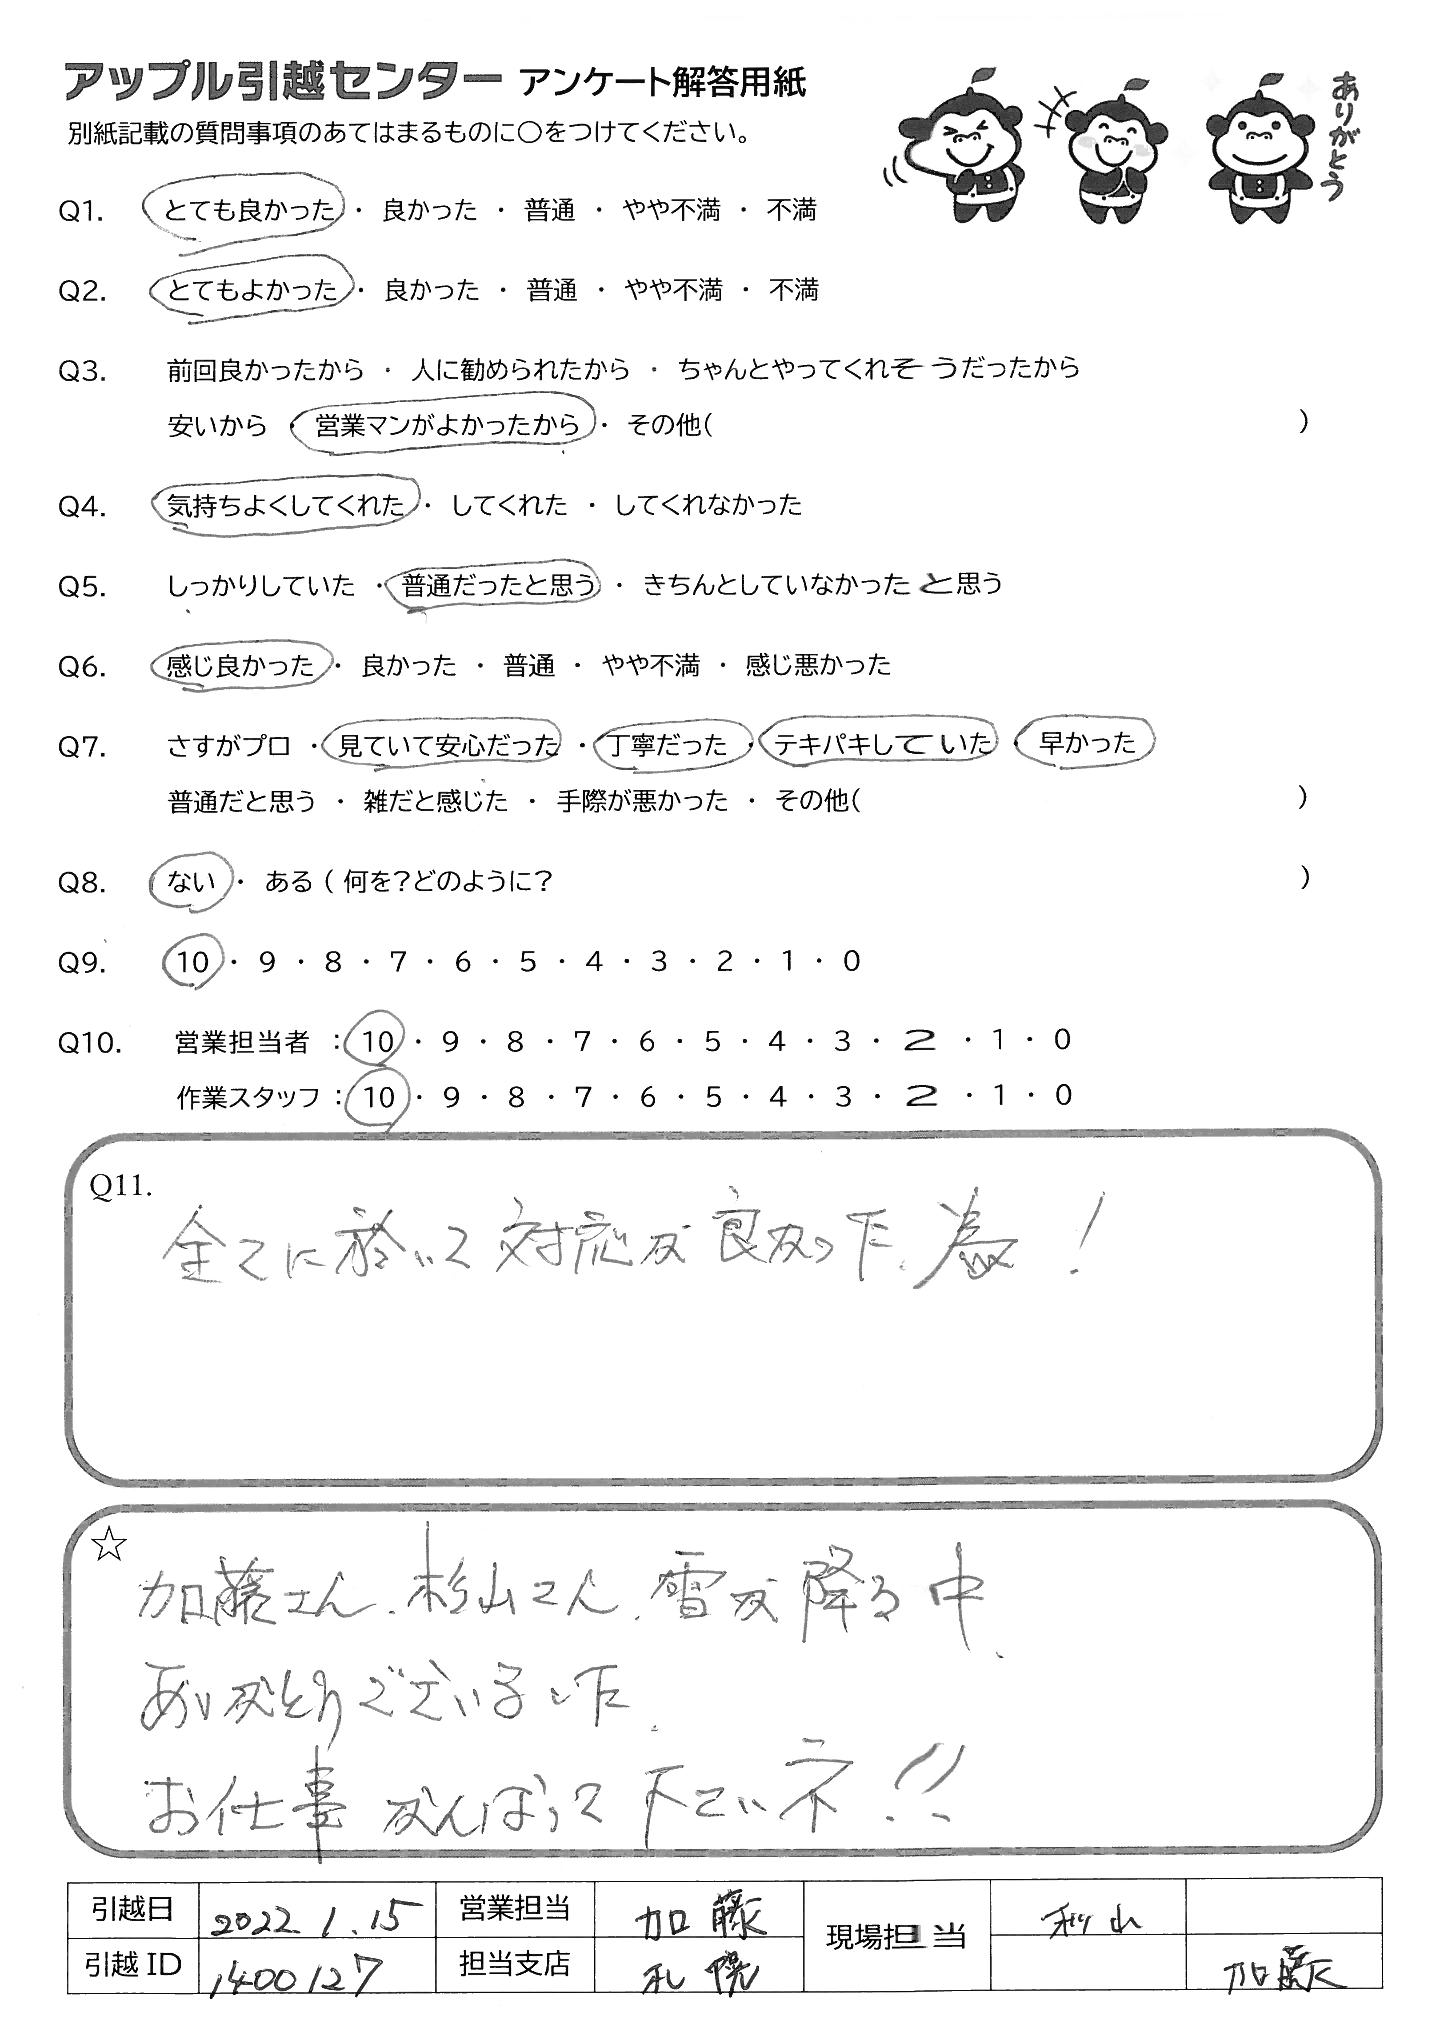 アップル引越センター アンケート解答用紙
ありがとう
別紙記載の質問事項のあてはまるものに〇をつけてください。
Q1. とても良かった ・ 良かった ・ 普通 ・ やや不満 ・ 不満
Q2. とてもよかった ・ 良かった ・ 普通 ・ やや不満 ・ 不満
Q3. 前回良かったから ・ 人に勧められたから ・ ちゃんとやってくれそうだったから
安いから ・ 営業マンがよかったから ・ その他( )
Q4. 気持ちよくしてくれた ・ してくれた ・ してくれなかった
Q5. しっかりしていた ・ 普通だったと思う ・ きちんとしていなかったと思う
Q6. 感じ良かった ・ 良かった ・ 普通 ・ やや不満 ・ 感じ悪かった
Q7. さすがプロ ・ 見ていて安心だった ・ 丁寧だった ・ テキパキしていた ・ 早かった
普通だと思う ・ 雑だと感じた ・ 手際が悪かった ・ その他( )
Q8. ない ・ ある ( 何を?どのように? )
Q9. 10 ・ 9 ・ 8 ・ 7 ・ 6 ・ 5 ・ 4 ・ 3 ・ 2 ・ 1 ・ 0
Q10. 営業担当者 : 10 ・ 9 ・ 8 ・ 7 ・ 6 ・ 5 ・ 4 ・ 3 ・ 2 ・ 1 ・ 0
作業スタッフ : 10 ・ 9 ・ 8 ・ 7 ・ 6 ・ 5 ・ 4 ・ 3 ・ 2 ・ 1 ・ 0
Q11.
全てに於いて対応が良かった為!
☆
加藤さん、杉山さん、雪が降る中、
ありがとうございました。
お仕事がんばって下さいネ!!
引越日 2022.1.15 営業担当 加藤 現場担当 杉山
引越ID 1400127 担当支店 札幌 加藤